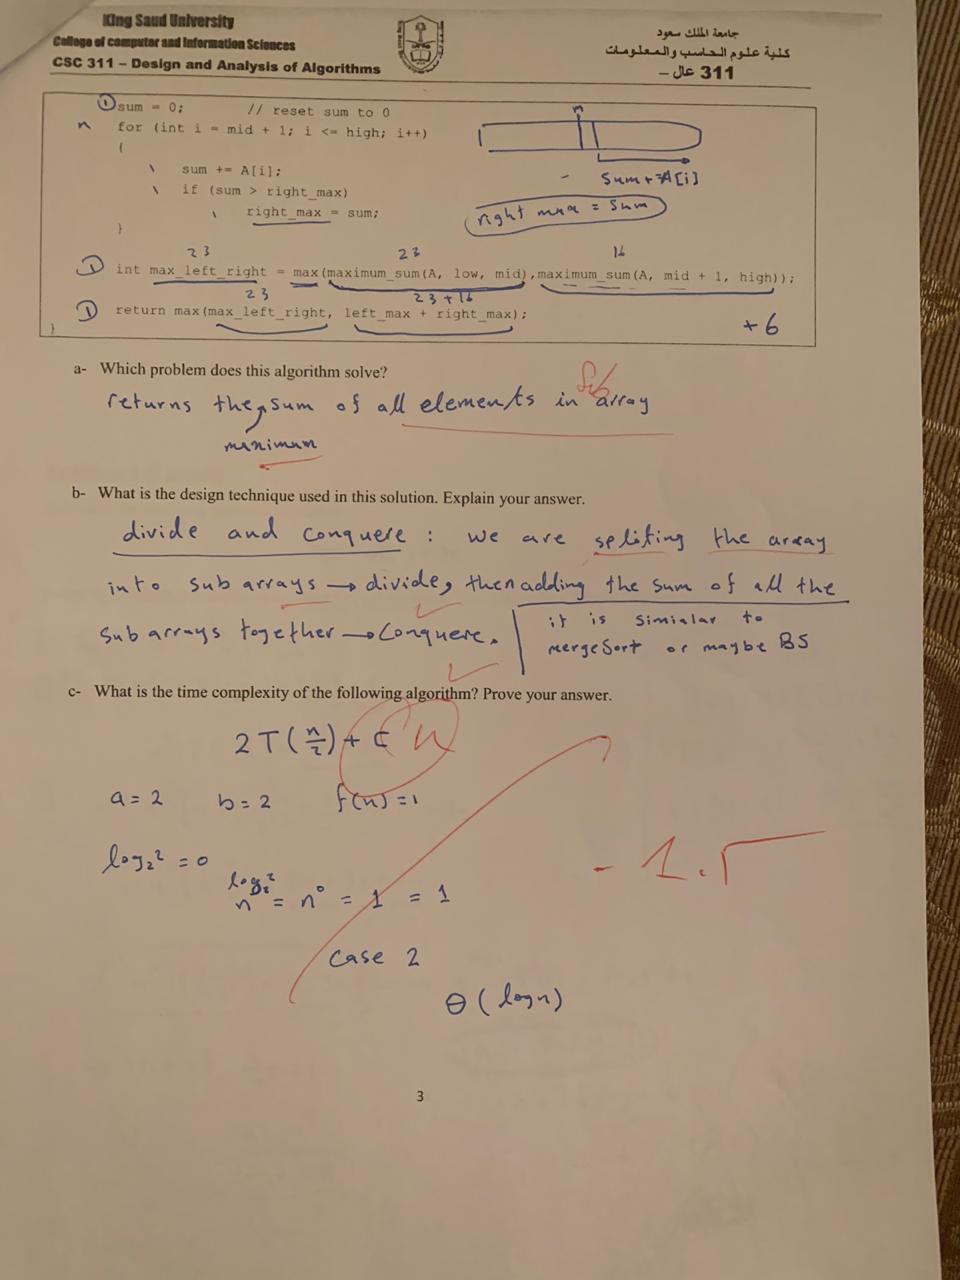 King Saud University
College of computer and Information Sciences
CSC 311 – Design and Analysis of Algorithms
جامعة الملك سعود
كلية علوم الحاسب والمعلومات
311 عال –
1 sum = 0; // reset sum to 0
n for (int i = mid + 1; i <= high; i++)
{
\ sum += A[i];
\ if (sum > right_max)
\ right_max = sum;
}
m
sum+=A[i]
right max = sum
23 23 16
1 int max_left_right = max(maximum_sum(A, low, mid),maximum_sum(A, mid + 1, high));
23 23+16
1 return max(max_left_right, left_max + right_max);
}
+6
a- Which problem does this algorithm solve?
Sub
returns the sum of all elements in array
manimum
b- What is the design technique used in this solution. Explain your answer.
divide and conquere : we are spliting the array
into sub arrays → divide, then adding the sum of all the
sub arrays together → Conquere.
it is simialar to
mergeSort or maybe BS
c- What is the time complexity of the following algorithm? Prove your answer.
2T(n/2) + C n
a = 2 b = 2 f(n) = 1
log₂2 = 0
n^log₂2 = n⁰ = 1 = 1
- 1.5
case 2
θ(logn)
3